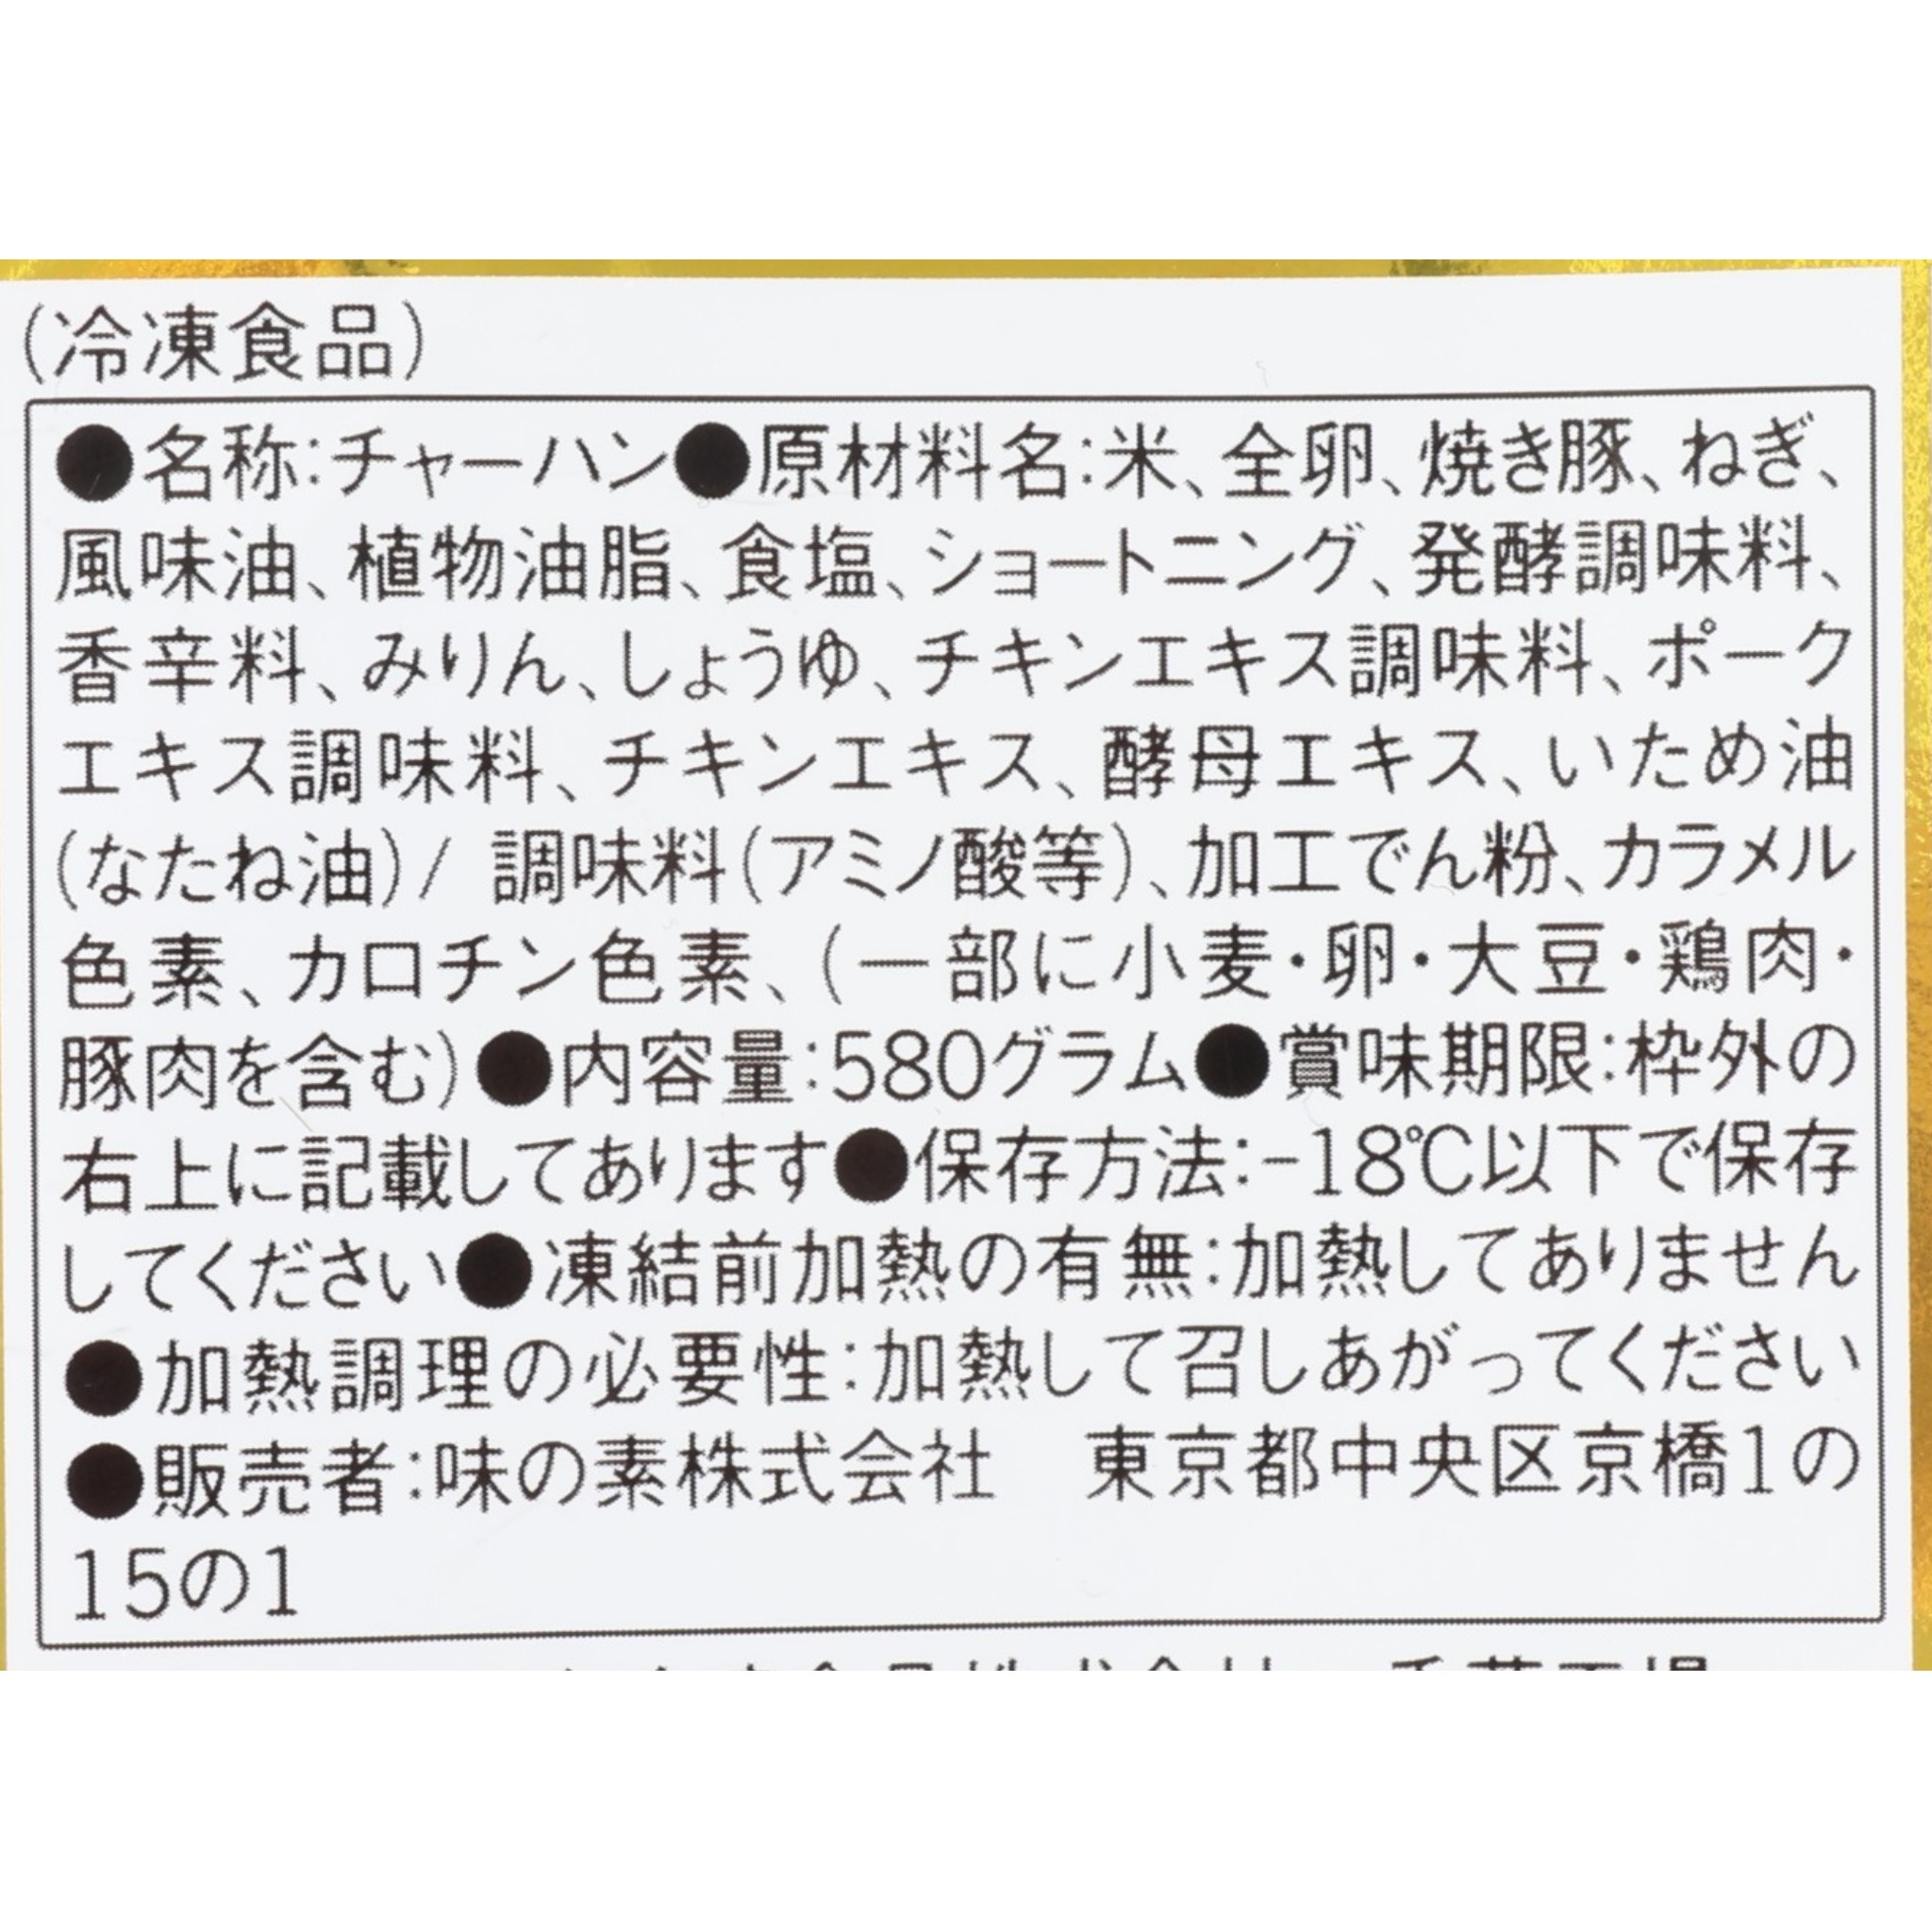 (冷凍食品)
●名称:チャーハン●原材料名:米、全卵、焼き豚、ねぎ、
風味油、植物油脂、食塩、ショートニング、発酵調味料、
香辛料、みりん、しょうゆ、チキンエキス調味料、ポーク
エキス調味料、チキンエキス、酵母エキス、いため油
(なたね油)/ 調味料(アミノ酸等)、加工でん粉、カラメル
色素、カロチン色素、(一部に小麦・卵・大豆・鶏肉・
豚肉を含む)●内容量:580グラム●賞味期限:枠外の
右上に記載してあります●保存方法:-18℃以下で保存
してください●凍結前加熱の有無:加熱してありません
●加熱調理の必要性:加熱して召しあがってください
●販売者:味の素株式会社　東京都中央区京橋1の
15の1